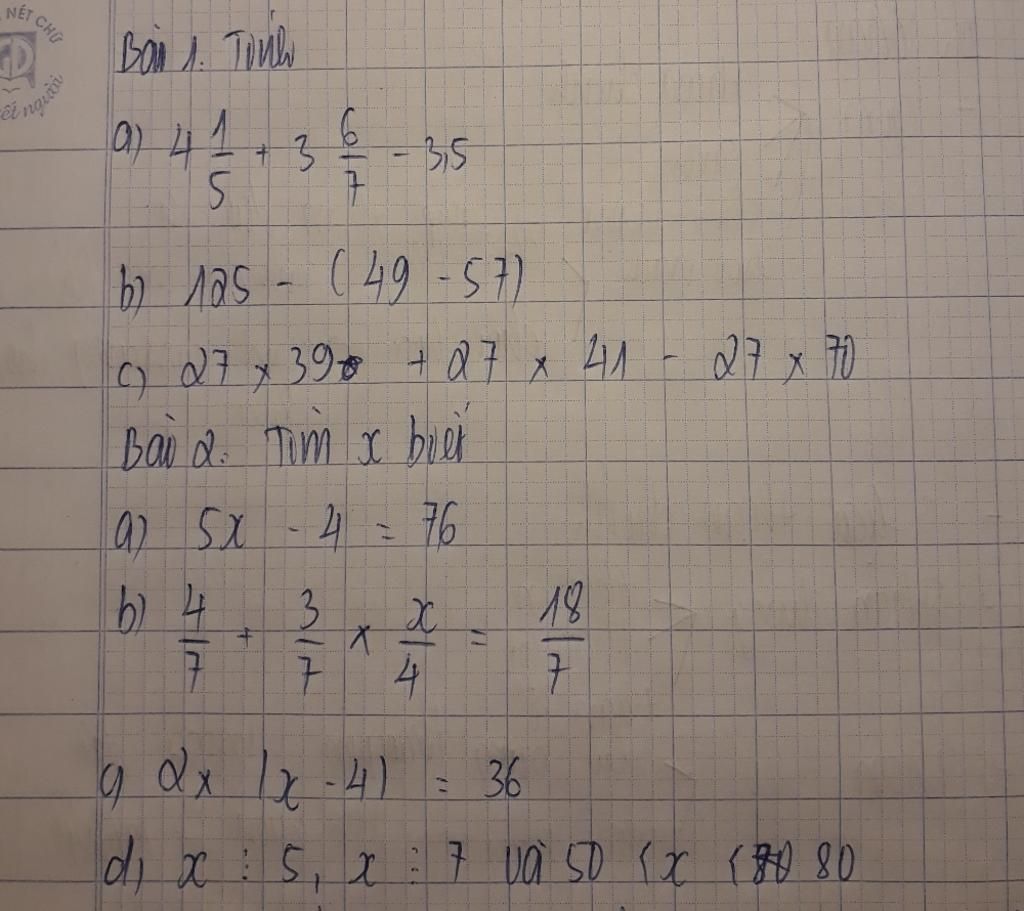 NÉT CHỮ
GD
ết người
Bài 1. Tính
a) 4 1/5 + 3 6/7 - 3,5
b) 125 - (49 - 57)
c) 27 x 39 + 27 x 41 - 27 x 70
Bài 2. Tìm x biết
a) 5x - 4 = 76
b) 4/7 + 3/7 x x/4 = 18/7
c) 2x (x - 4) = 36
d) x ⋮ 5, x ⋮ 7 và 50 < x < 80